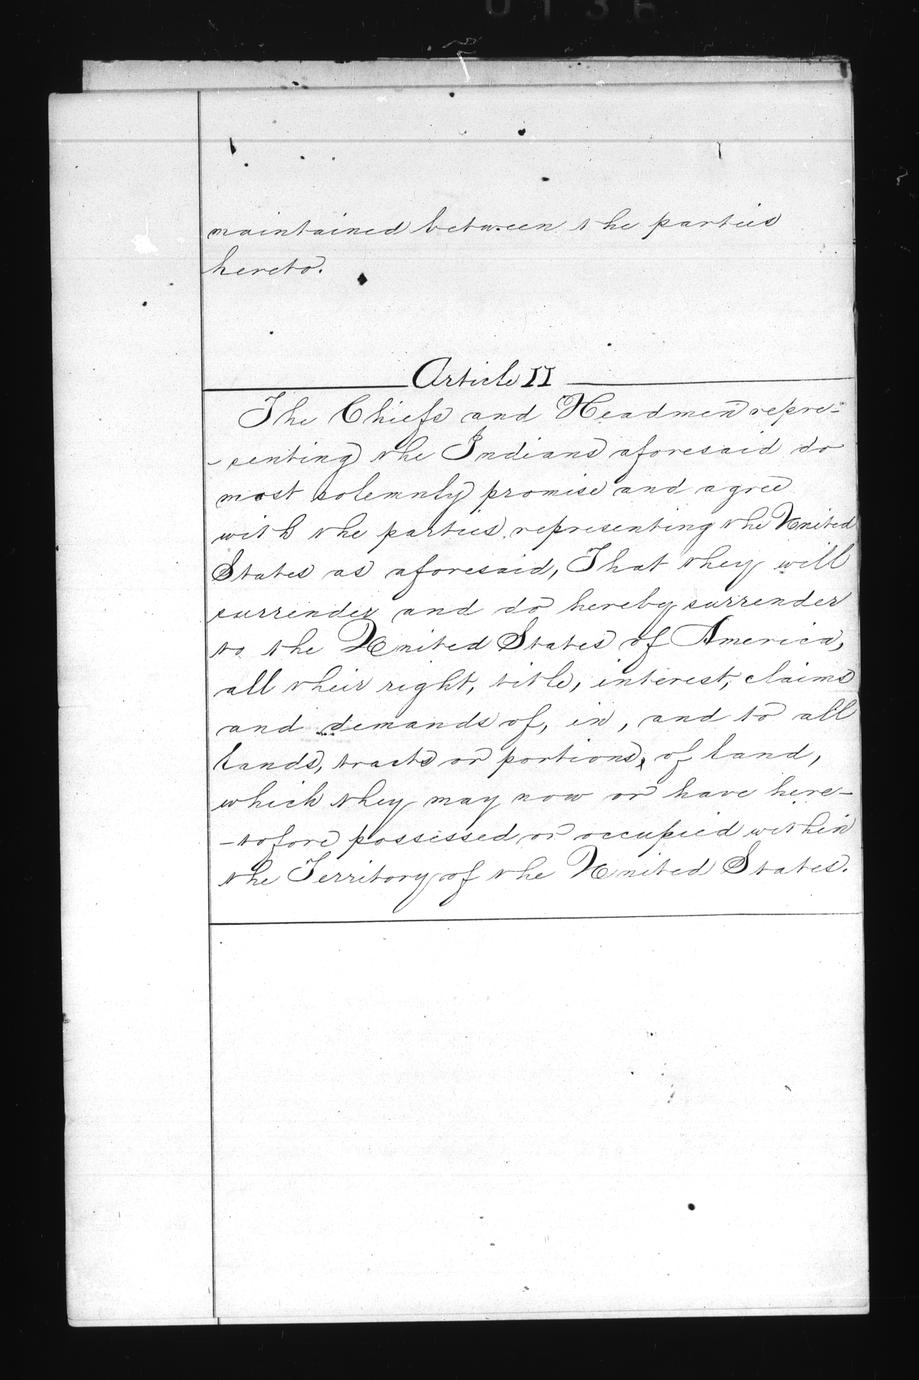 maintained between the parties
hereto.
Article II
The Chiefs and Headmen repre-
-senting the Indians aforesaid do
most solemnly promise and agree
with the parties, representing the United
States as aforesaid, That they will
surrender and do hereby surrender
to the United States of America,
all their right, title, interest, claims
and demands of, in, and to all
lands, tracts or portions, of land,
which they may now or have here-
-tofore possessed or occupied within
the Territory of the United States.